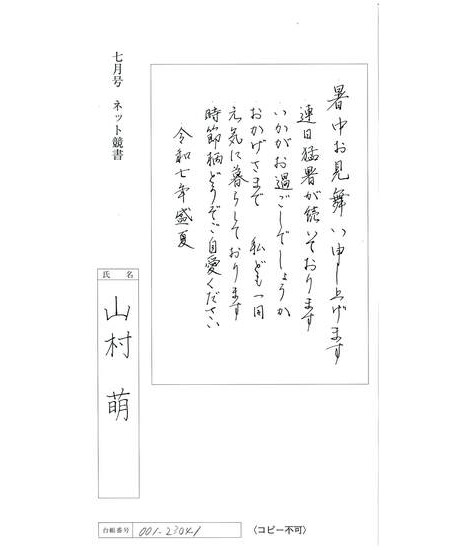 七月号 ネット競書
暑中お見舞い申し上げます
連日猛暑が続いております
いかがお過ごしでしょうか
おかげさまで 私ども一同
元気に暮らしております
時節柄どうぞご自愛ください
令和七年盛夏
氏名
山村 萌
台帳番号 001-23041
(コピー不可)